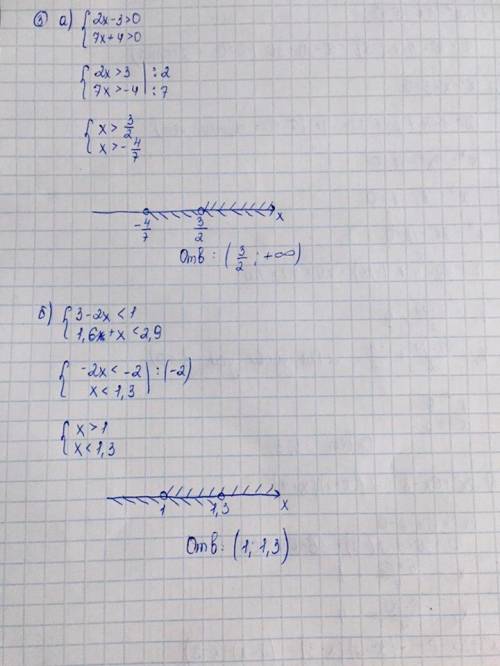 ③ а) { 2x-3>0
7x+4>0
{ 2x>3 | :2
7x>-4 | :7
{ x> 3/2
x>- 4/7
-4/7 3/2 x
Отв: (3/2; +∞)
б) { 3-2x<1
1,6x+x<2,9
{ -2x<-2 | :(-2)
x<1,3
{ x>1
x<1,3
1 1,3 x
Отв: (1; 1,3)